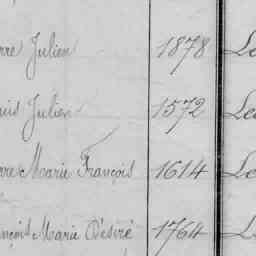 rre Julien 1878 Le
uis Julien 1572 Le
rre Marie François 1614 Le
nçois Marie Désiré 1764 L